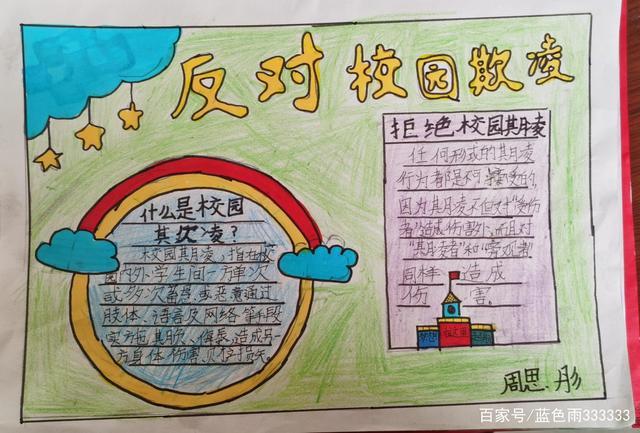 反对校园欺凌
什么是校园
欺凌？
校园欺凌，指在校
园内外学生间一方单次
或多次蓄意或恶意通过
肢体、语言及网络等手段
实施欺负、侮辱，造成另一
方身体伤害、财产损失。
拒绝校园欺凌
任何形式的欺凌
行为都是不可接受的，
因为欺凌不但对“受伤
者”造成伤害外，而且对
“欺凌者”和“旁观者”
同样造成
伤害。
周思彤
百家号/蓝色雨333333